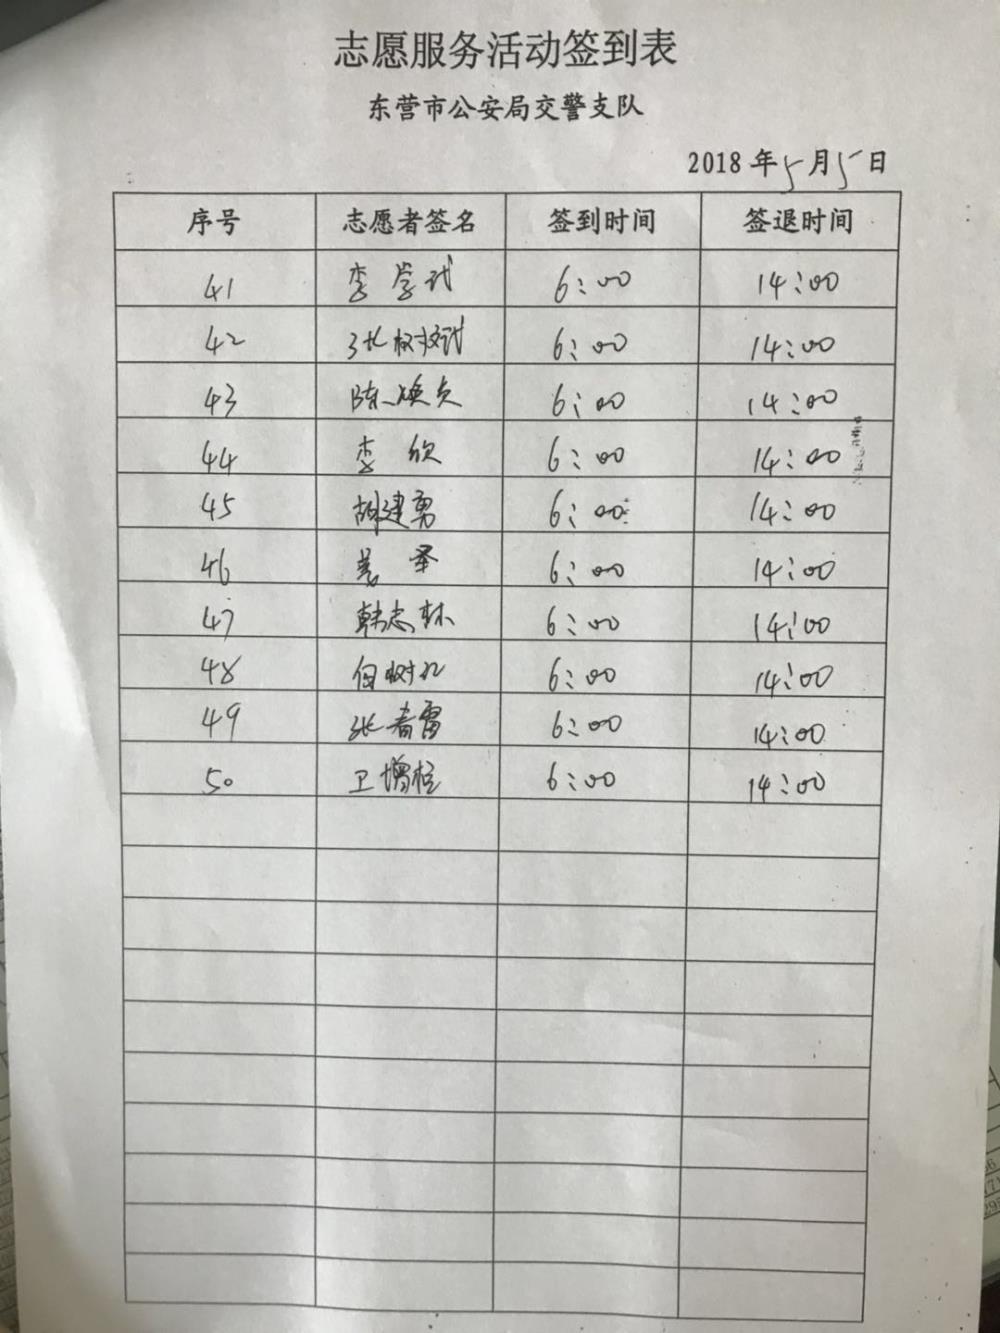 志愿服务活动签到表
东营市公安局交警支队
2018 年 5 月 5 日
序号 志愿者签名 签到时间 签退时间
41 李学武 6:00 14:00
42 张树 6:00 14:00
43 陈焕 6:00 14:00
44 李欣 6:00 14:00
45 胡建勇 6:00 14:00
46 姜圣 6:00 14:00
47 韩志林 6:00 14:00
48 树 6:00 14:00
49 张春雷 6:00 14:00
50 卫增柱 6:00 14:00